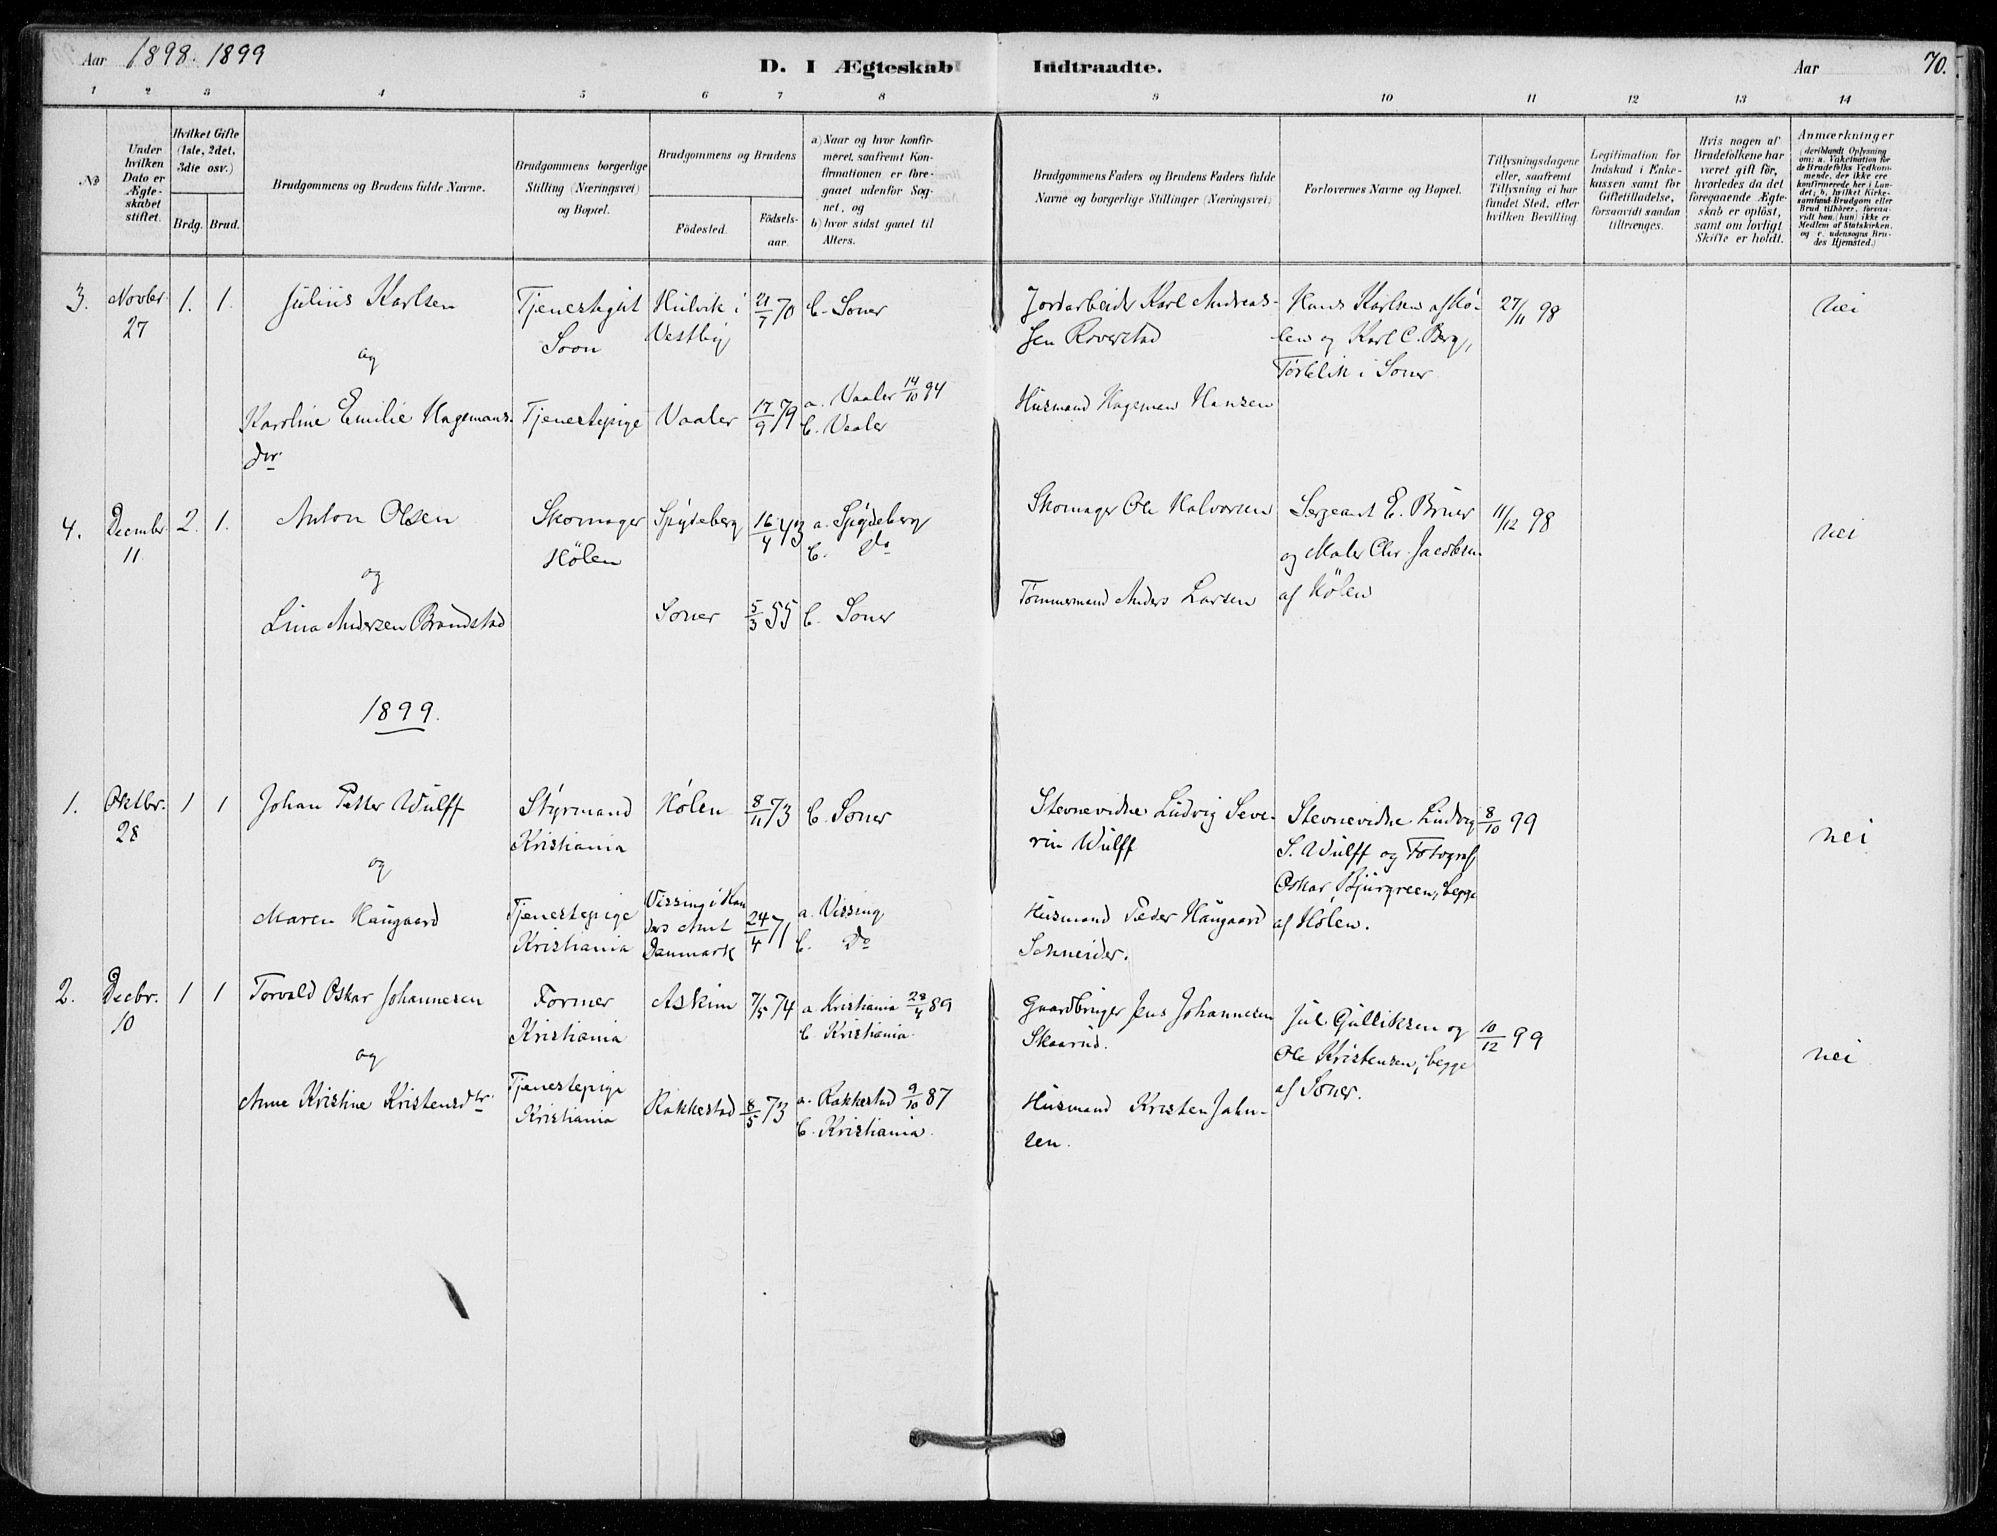 Aar 1898. 1899
D. I Ægteskab Indtraadte.
Aar
70.
1 2 3 4 5 6 7 8 9 10 11 12 13 14
No
Under hvilken Dato er Ægteskabet stiftet.
Hvilket Gifte (1ste, 2det, 3die osv.)
Brdg. Brud.
Brudgommens og Brudens fulde Navne.
Brudgommens borgerlige Stilling (Næringsvei) og Bopæl.
Brudgommens og Brudens
Födested.
Födselsaar.
a) Naar og hvor konfirmeret, saafremt Konfirmationen er foregaaet udenfor Sognet, og
b) hvor sidst gaaet til Alters.
Brudgommens Faders og Brudens Faders fulde Navne og borgerlige Stillinger (Næringsvei)
Forlovernes Navne og Bopæl.
Tillysningsdagene eller, saafremt Tillysning ei har fundet Sted, efter hvilken Bevilling.
Legitimation for Indskud i Enkekassen samt for Giftetilladelse, forsaavidt saadan tiltrænges.
Hvis nogen af Brudefolkene har været gift för, hvorledes da det foregaaende Ægteskab er oplöst, samt om lovligt Skifte er holdt.
Anmærkninger (deriblandt Oplysning om: a. Vakcination for de Brudefolks Vedkommende, der ikke ere konfirmerede her i Landet; b. hvilket Kirkesamfund Brudgom eller Brud tilhörer, forsaavidt han (hun) ikke er Medlem af Statskirken, og c. udensogns Brudes Hjemsted.)
3. Novbr. 27
1. 1.
Julius Karlsen
og
Karoline Emilie Hagemans-
dtr.
Tjenestegut
Soon
Tjenestepige
Hulvik i
Vestby
Vaaler
21/7 70
17/9 79
b. Soner
a. Vaaler 14/10 94
b. Vaaler
Jordarbeider Karl Andreas-
sen Roverstad
Husmand Hageman Hansen
Hans Karlsen af Hø-
len og Karl C. Berg,
Torblik i Soner
27/11 98
nei
4. Decembr. 11.
2. 1.
Anton Olsen
og
Lina Andersen Brandstad
Skomager
Hølen
Spydeberg
Soner
16/4 43
5/3 55
a. Spydeberg
b. Do
b. Soner
Skomager Ole Halvorsen
Tømmermand Anders Larsen
Sergeant E. Bruer
og Maler Chr. Jacobsen
af Hølen
11/12 98
nei
1899.
1. Oktbr. 28
1 1
Johan Petter Wulff
og
Maren Haugaard
Styrmand
Kristiania
Tjenestepige
Kristiania
Hølen
Vissing i Ran
ders Amt
Danmark
8/11 73
24/4 71
b. Soner
a. Vissing
b. Do
Stevnevidne Ludvig Seve-
rin Wulff
Husmand Peder Haugaard
Schneider.
Stevnevidne Ludvig
S. Wulff og Fotograf
Oskar Bjurgreen, begge
af Hølen.
8/10 99
nei
2. Decbr. 10
1 1
Torvald Oskar Johannesen
og
Anne Kristine Kristensdtr.
Former
Kristiania
Tjenestepige
Kristiania
Askim
Rakkestad
7/5 74
8/5 73
a. Kristiania 28/4 89
b. Kristiania.
a. Rakkestad 9/10 87
b. Kristiania.
Gaardbruger Jens Johannesen
Skaarud.
Husmand Kristen Jahn-
sen.
Jul. Gulliksen og
Ole Kristensen, begge
af Soner.
10/12 99
nei